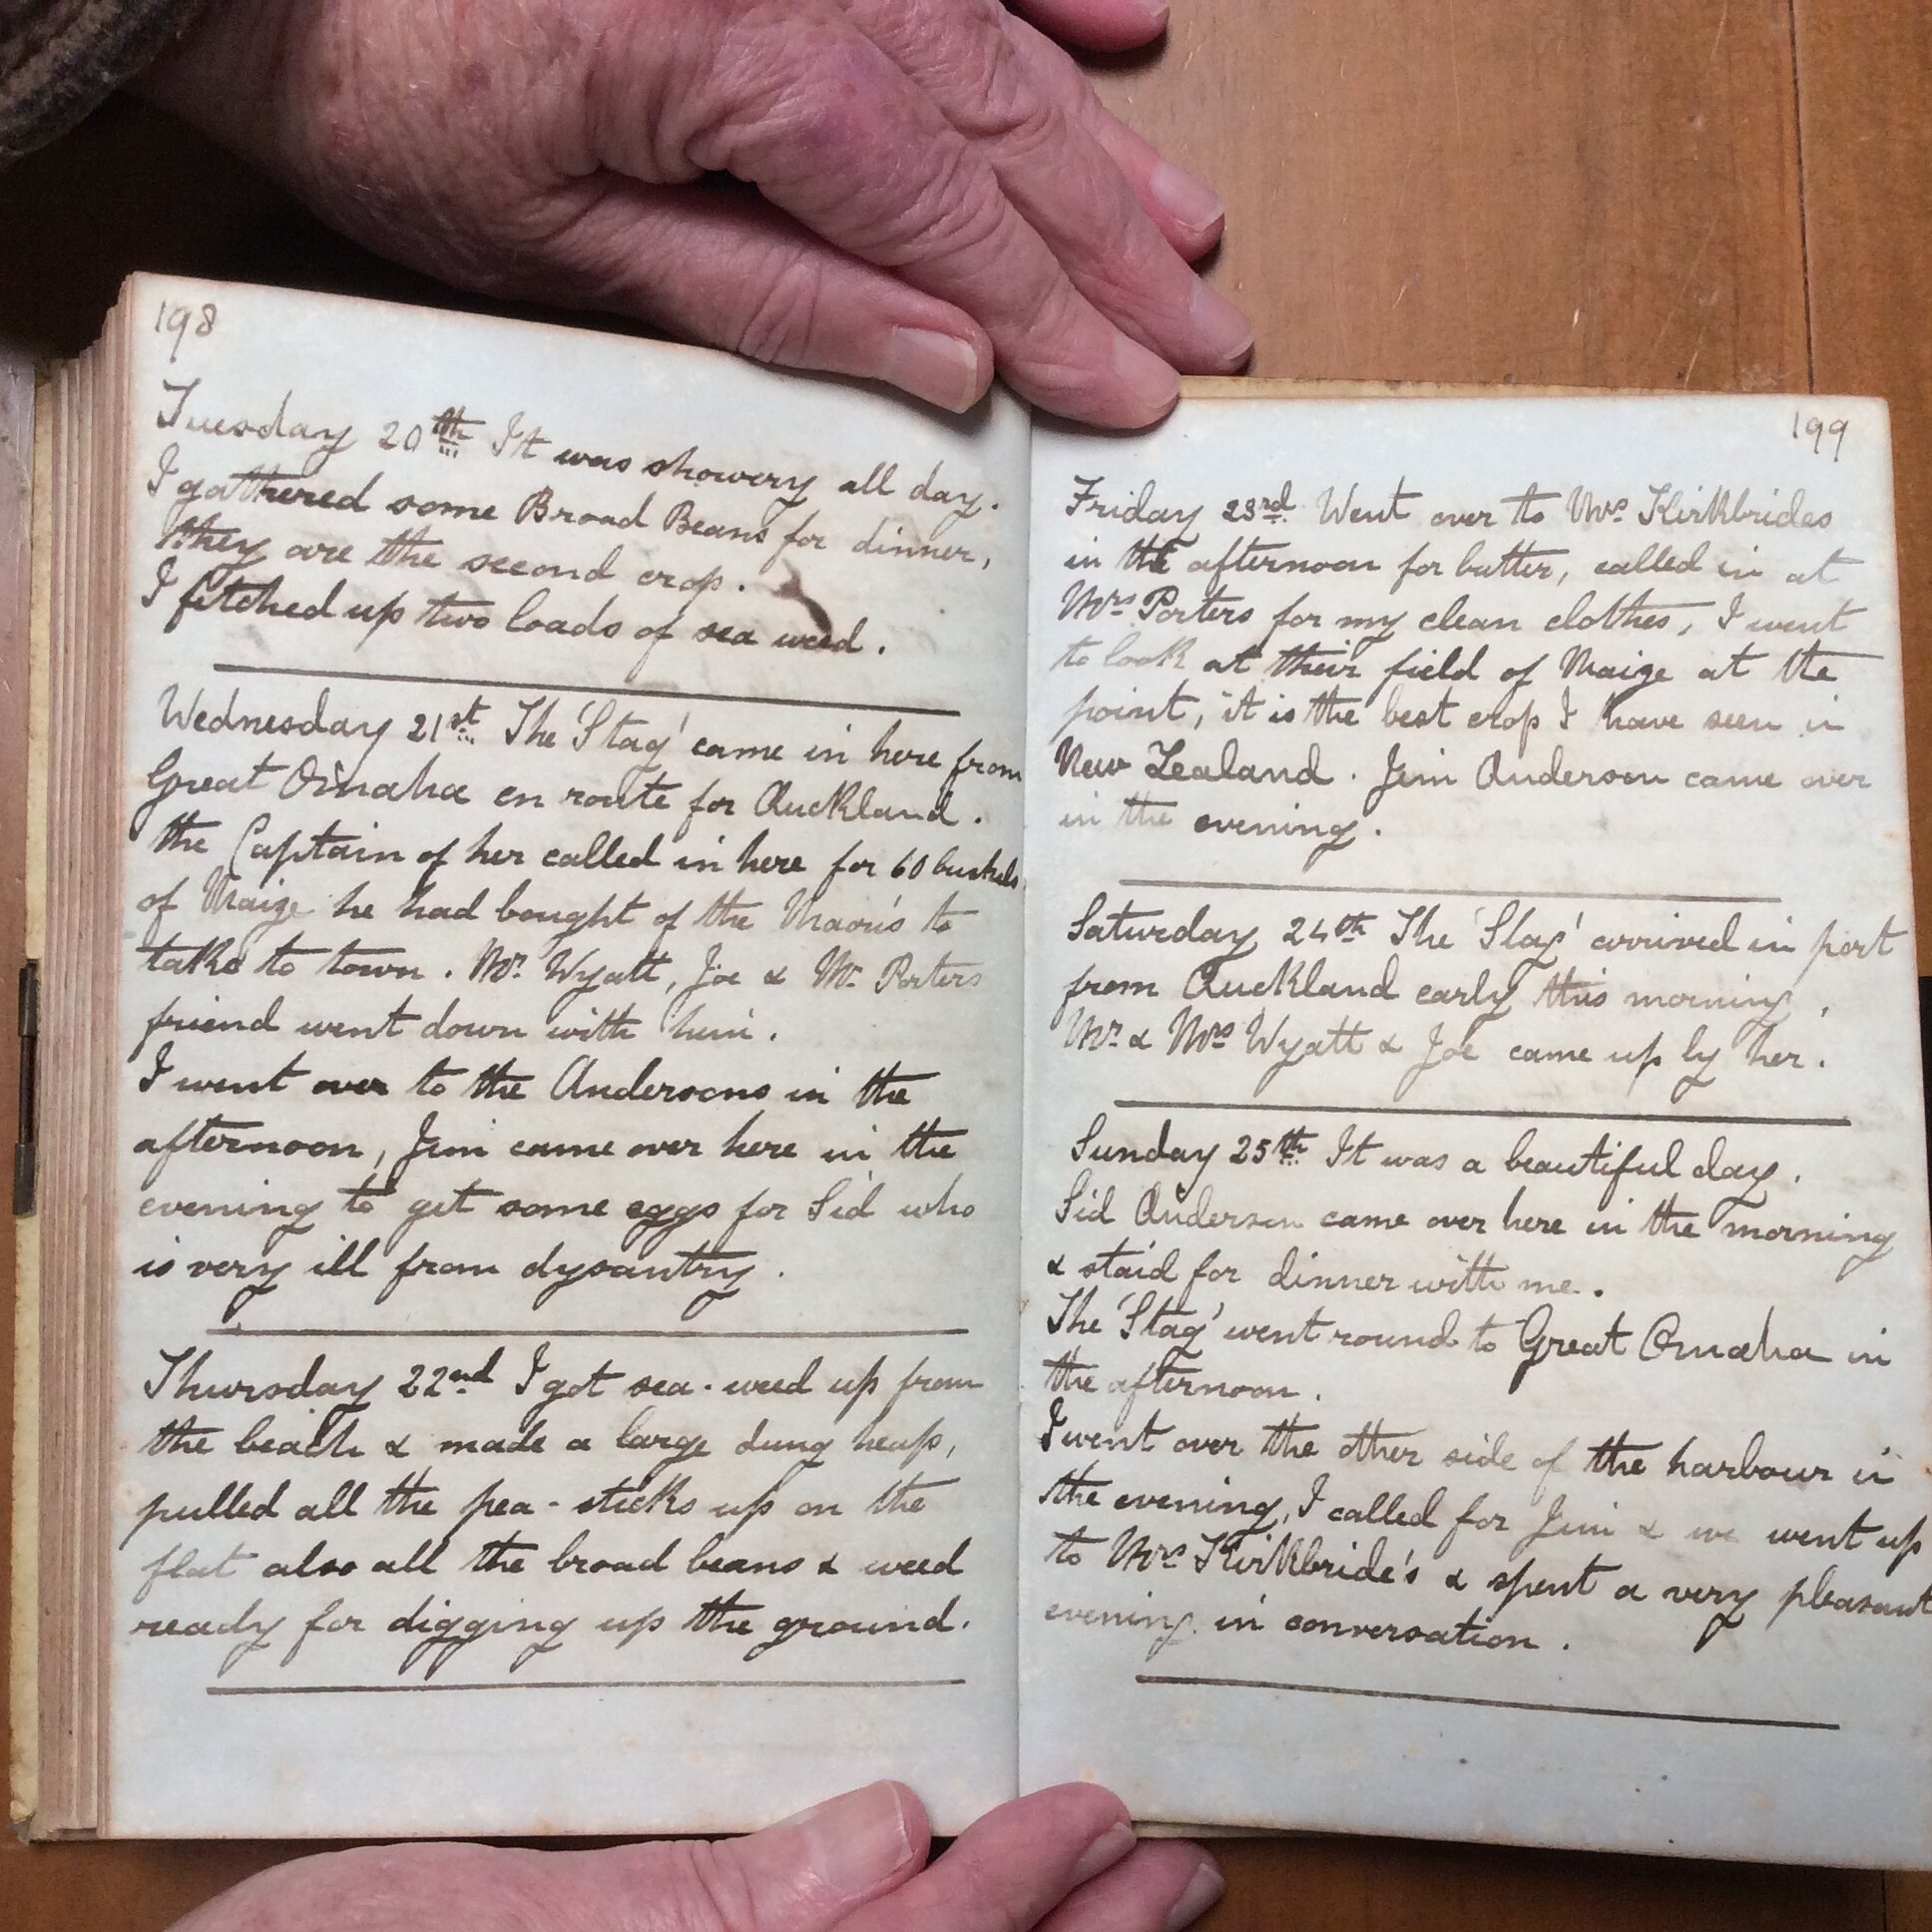 198
Tuesday 20th It was showery all day.
I gathered some Broad Beans for dinner,
they are the second crop.
I fetched up two loads of sea weed.
Wednesday 21st The 'Stag' came in here from
Great Omaha en route for Auckland.
the Captain of her called in here for 60 bushels
of Maize he had bought of the Maoris to
take to town. Mr. Wyatt, Joe & Mr. Porters
friend went down with him.
I went over to the Andersons in the
afternoon, Jim came over here in the
evening to get some eggs for Sid who
is very ill from dysantry.
Thursday 22nd I got sea-weed up from
the beach & made a large dung heap,
pulled all the pea-sticks up on the
flat also all the broad beans & weed
ready for digging up the ground.
199
Friday 23rd. Went over to Mrs Kirkbrides
in the afternoon for butter, called in at
Mrs Porters for my clean clothes, I went
to look at their field of Maize at the
point, it is the best crop I have seen in
New Zealand. Jim Anderson came over
in the evening.
Saturday 24th The 'Stag' arrived in port
from Auckland early this morning.
Mr & Mrs Wyatt & Joe came up by her.
Sunday 25th It was a beautiful day.
Sid Anderson came over here in the morning
& staid for dinner with me.
The 'Stag' went round to Great Omaha in
the afternoon.
I went over the other side of the harbour in
the evening, I called for Jim & we went up
to Mrs Kirkbride's & spent a very pleasant
evening in conversation.